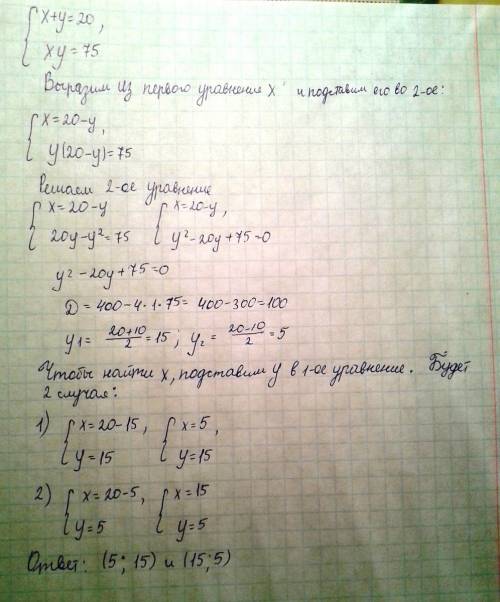 { x+y=20,
xy=75
Выразим из первого уравнение x и подставим его во 2-ое:
{ x=20-y,
y(20-y)=75
Решаем 2-ое уравнение
{ x=20-y { x=20-y,
20y-y²=75 y²-20y+75=0
y²-20y+75=0
D=400-4·1·75= 400-300=100
y₁= (20+10)/2=15; y₂= (20-10)/2=5
Чтобы найти x, подставим y в 1-ое уравнение. Будет
2 случая:
1) { x=20-15, { x=5,
y=15 y=15
2) { x=20-5, { x=15
y=5 y=5
Ответ: (5; 15) и (15;5)